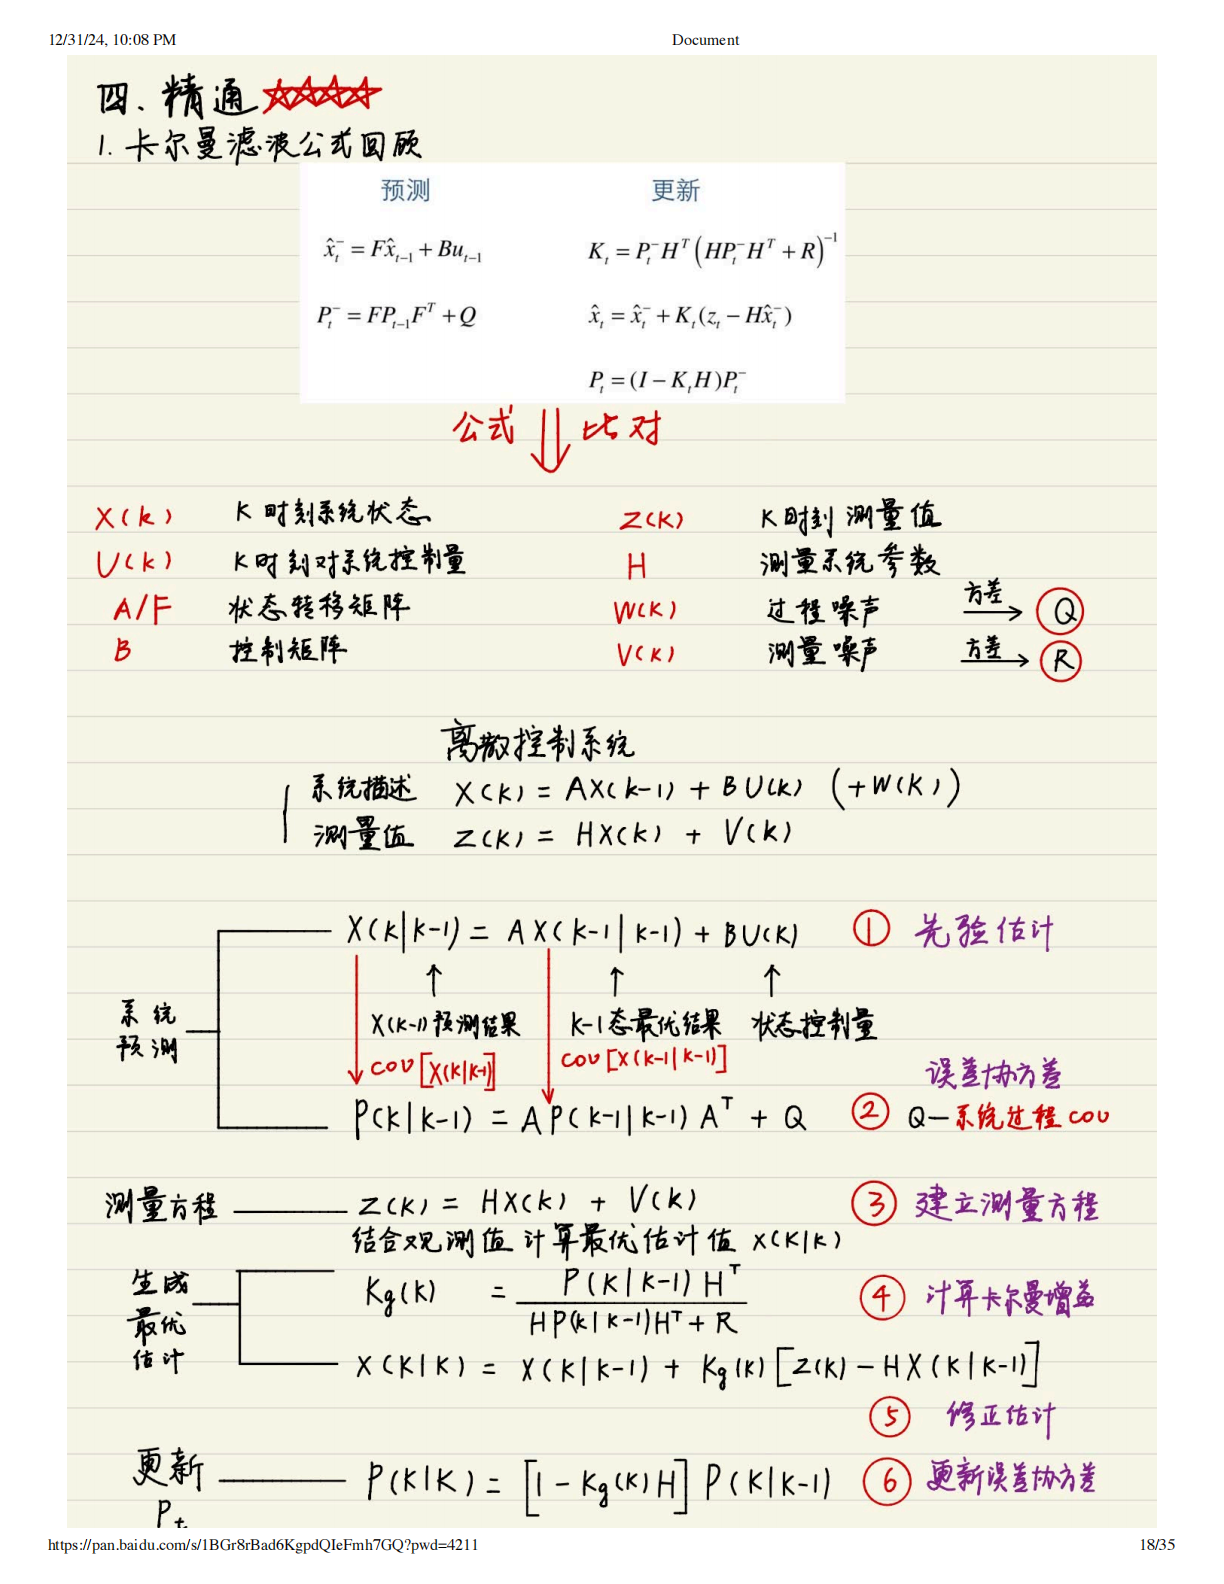 12/31/24, 10:08 PM Document
四. 精通 ☆☆☆☆
1. 卡尔曼滤波公式回顾
预测 更新
x̂ₜ⁻ = Fx̂ₜ₋₁ + Buₜ₋₁ Kₜ = Pₜ⁻Hᵀ(HPₜ⁻Hᵀ + R)⁻¹
Pₜ⁻ = FPₜ₋₁Fᵀ + Q x̂ₜ = x̂ₜ⁻ + Kₜ(zₜ − Hx̂ₜ⁻)
Pₜ = (I − KₜH)Pₜ⁻
公式 ⇓ 比对
X(k) K时刻系统状态 Z(K) K时刻测量值
U(k) K时刻对系统控制量 H 测量系统参数
A/F 状态转移矩阵 W(K) 过程噪声 方差→ Q
B 控制矩阵 V(K) 测量噪声 方差→ R
离散控制系统
系统描述 X(k) = AX(k-1) + BU(k) (+W(K))
测量值 Z(K) = HX(k) + V(k)
X(k|k-1) = AX(k-1|k-1) + BU(K) ① 先验估计
↑ ↑ ↑
系统预测 X(k-1)预测结果 k-1态最优结果 状态控制量
cov[X(k|k-1)] cov[X(k-1|k-1)] 误差协方差
P(k|k-1) = AP(k-1|k-1)Aᵀ + Q ② Q—系统过程cov
测量方程 Z(K) = HX(k) + V(k) ③ 建立测量方程
结合观测值计算最优估计值 X(K|K)
生成最优估计 Kg(k) = P(k|k-1)Hᵀ / HP(k|k-1)Hᵀ + R ④ 计算卡尔曼增益
X(K|K) = X(k|k-1) + Kg(k)[Z(k) - HX(k|k-1)]
⑤ 修正估计
更新 P(K|K) = [1 - Kg(k)H] P(K|K-1) ⑥ 更新误差协方差
Pₜ
https://pan.baidu.com/s/1BGr8rBad6KgpdQIeFmh7GQ?pwd=4211 18/35